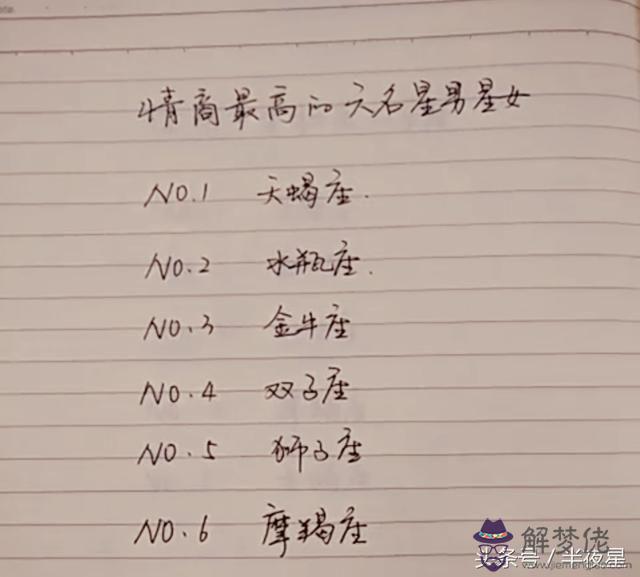 情商最高的六名星男星女
NO.1 天蝎座.
NO.2 水瓶座.
NO.3 金牛座
NO.4 双子座
NO.5 狮子座
NO.6 摩羯座
解梦佬
头条号/半夜星